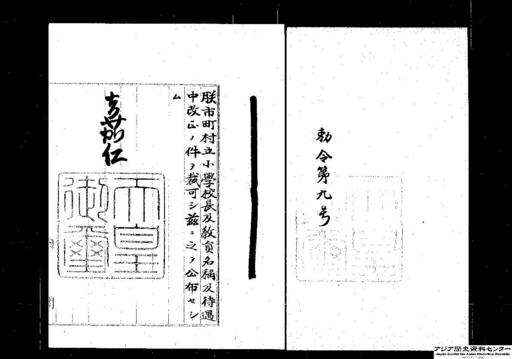 勅令第九号
朕市町村立小學校長及教員名稱及待遇
中改正ノ件ヲ裁可シ茲ニ之ヲ公布セシ
ム
嘉仁
天皇
御璽
アジア歴史資料センター
Japan Center for Asian Historical Records